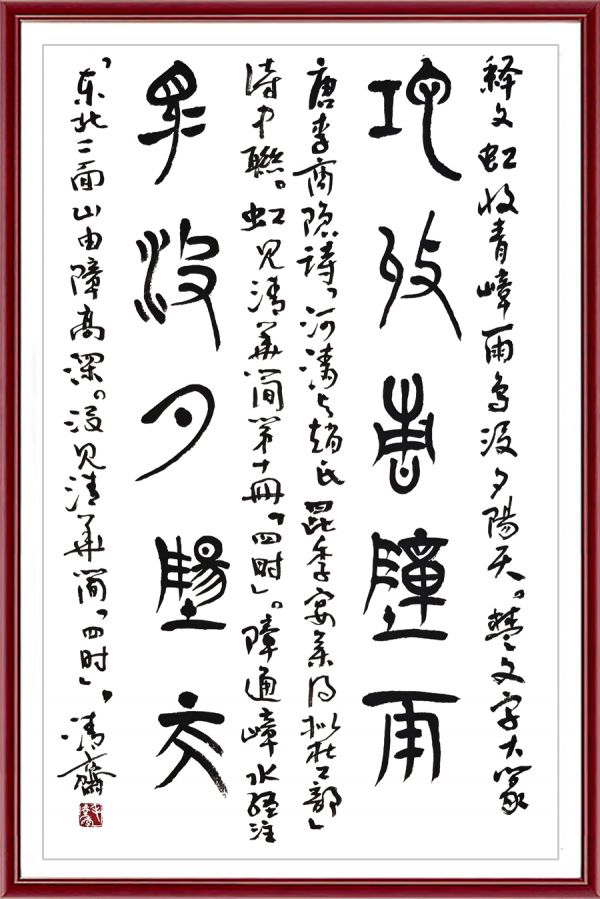 释文虹收青嶂雨鸟没夕陽天。楚文字大篆
虹收青障雨
唐李商隐诗「河清与趙氏昆季宴集得拟杜工部」
诗中聯。虹见清華简第十冊「四时」。障通嶂水经注
鳥没夕陽天
「东北二面山由障高深。没见清華简「四时」。清齋